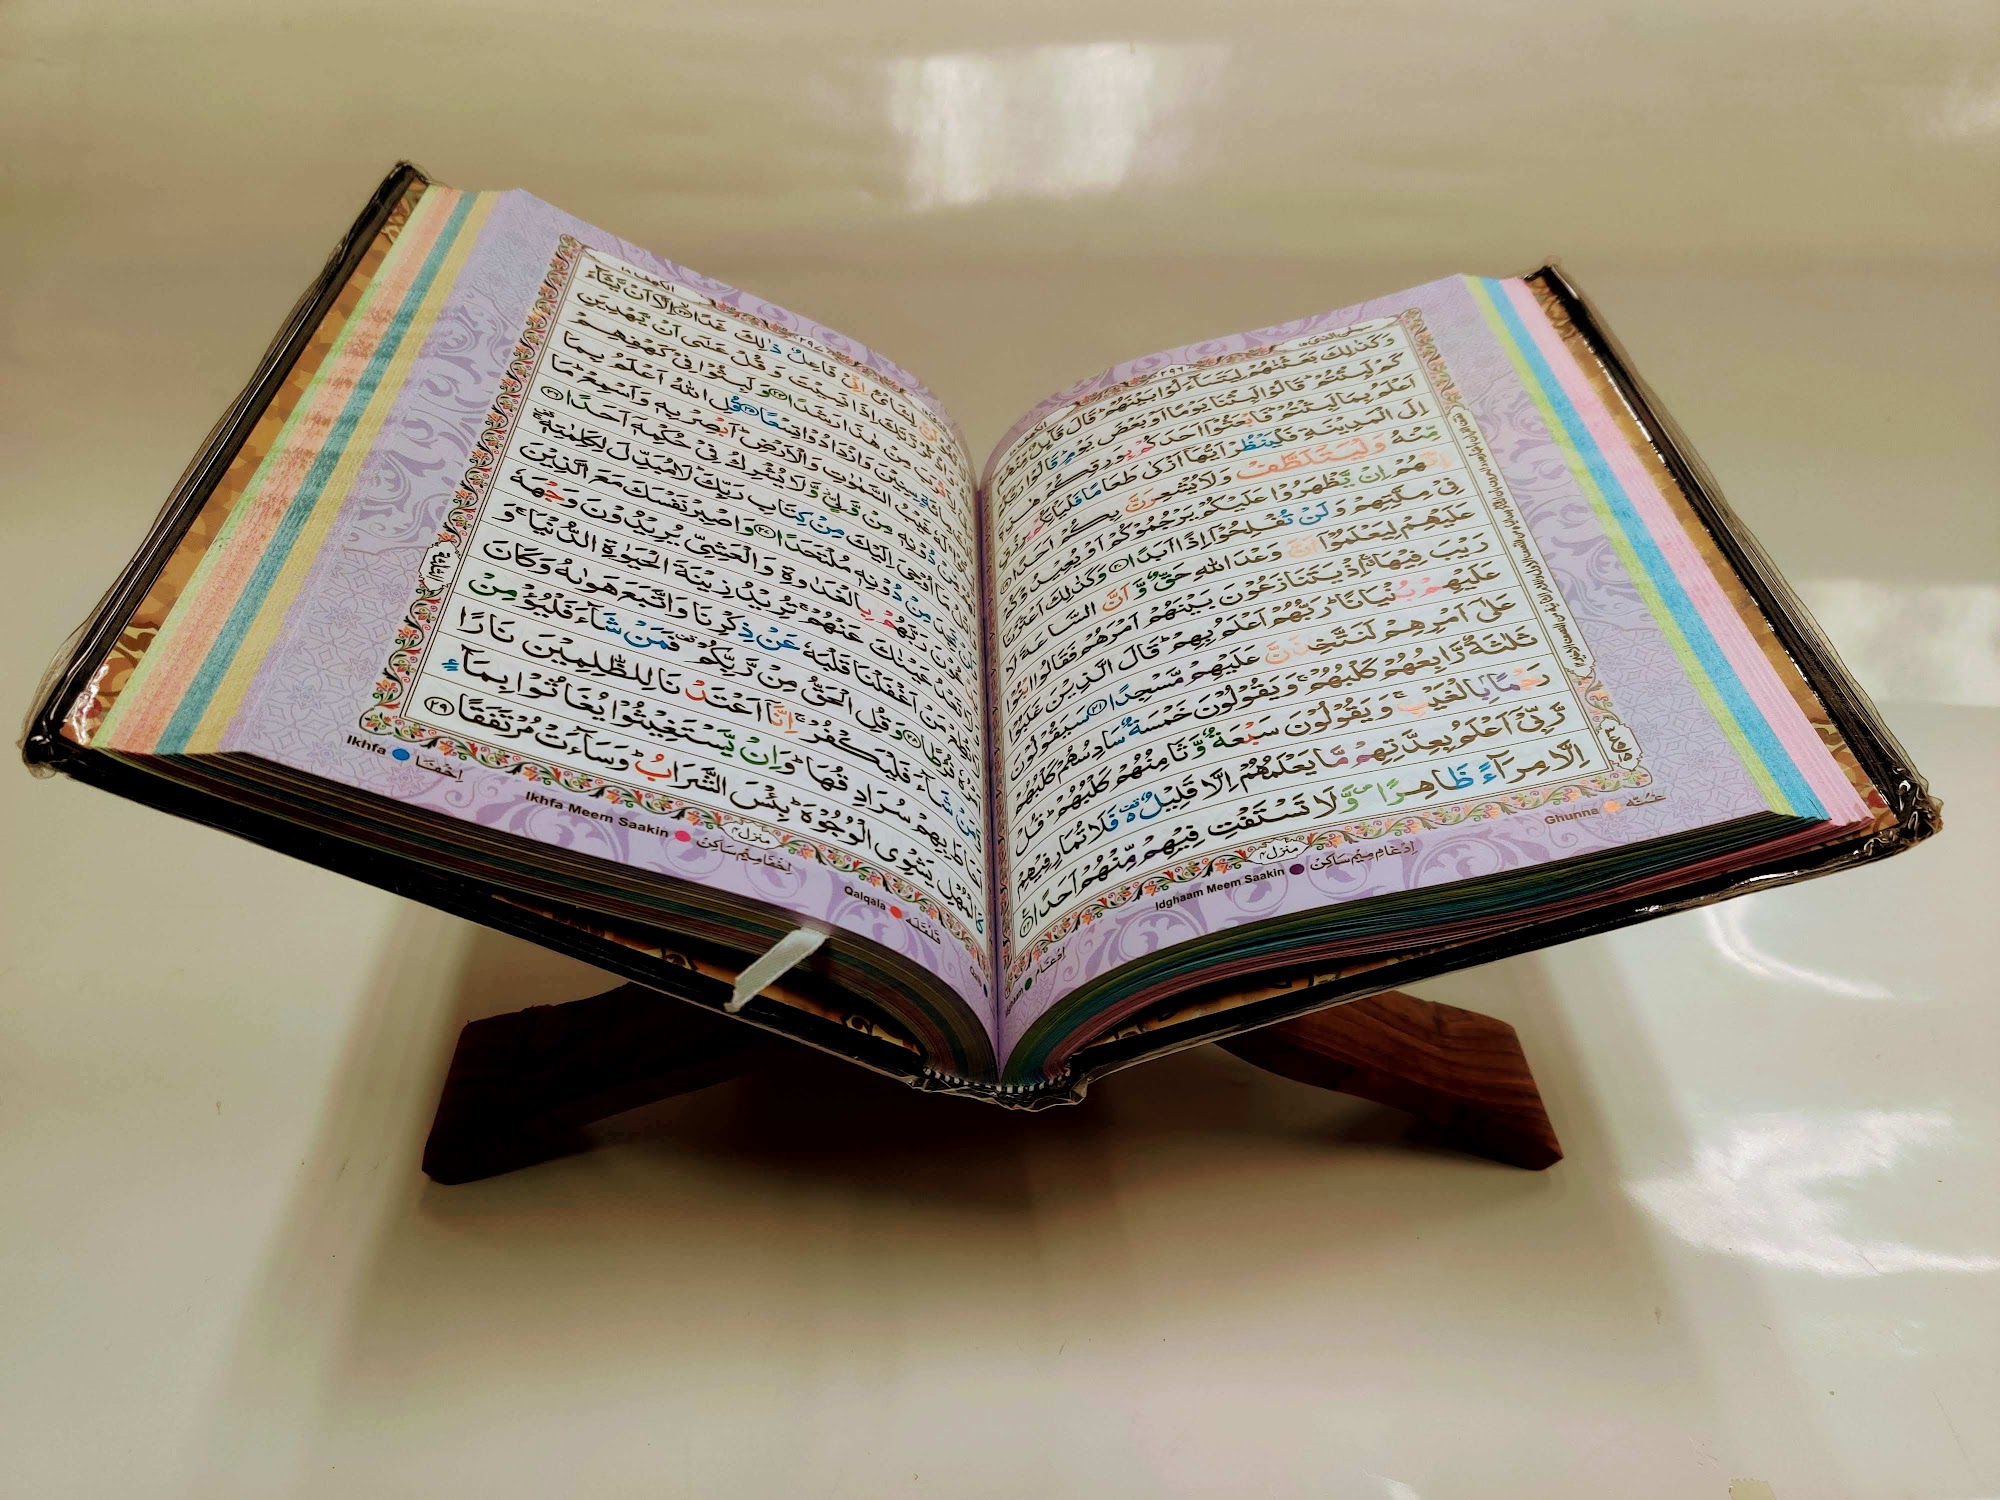 سبحٰن الذی ١٥
٢٩٦
الكهف
وَكَذٰلِكَ بَعَثْنٰهُمْ لِيَتَسَآءَلُوْا بَيْنَهُمْ ؕ قَالَ قَآئِلٌ مِّنْهُمْ
كَمْ لَبِثْتُمْ ؕ قَالُوْا لَبِثْنَا يَوْمًا اَوْ بَعْضَ يَوْمٍ ؕ قَالُوْا رَبُّكُمْ
اَعْلَمُ بِمَا لَبِثْتُمْ ؕ فَابْعَثُوْۤا اَحَدَكُمْ بِوَرِقِكُمْ هٰذِهٖۤ
اِلَى الْمَدِيْنَةِ فَلْيَنْظُرْ اَيُّهَاۤ اَزْكٰى طَعَامًا فَلْيَاْتِكُمْ بِرِزْقٍ
مِّنْهُ وَلْيَتَلَطَّفْ وَلَا يُشْعِرَنَّ بِكُمْ اَحَدًا ۱۹
اِنَّهُمْ اِنْ يَّظْهَرُوْا عَلَيْكُمْ يَرْجُمُوْكُمْ اَوْ يُعِيْدُوْكُمْ
فِيْ مِلَّتِهِمْ وَلَنْ تُفْلِحُوْۤا اِذًا اَبَدًا ۲۰ وَكَذٰلِكَ اَعْثَرْنَا
عَلَيْهِمْ لِيَعْلَمُوْۤا اَنَّ وَعْدَ اللّٰهِ حَقٌّ وَّاَنَّ السَّاعَةَ لَا
رَيْبَ فِيْهَا ۚ اِذْ يَتَنَازَعُوْنَ بَيْنَهُمْ اَمْرَهُمْ فَقَالُوا ابْنُوْا
عَلَيْهِمْ بُنْيَانًا ؕ رَبُّهُمْ اَعْلَمُ بِهِمْ ؕ قَالَ الَّذِيْنَ غَلَبُوْا
عَلٰۤى اَمْرِهِمْ لَنَتَّخِذَنَّ عَلَيْهِمْ مَّسْجِدًا ۲۱ سَيَقُوْلُوْنَ
ثَلٰثَةٌ رَّابِعُهُمْ كَلْبُهُمْ ۚ وَيَقُوْلُوْنَ خَمْسَةٌ سَادِسُهُمْ كَلْبُهُمْ
رَجْمًا بِالْغَيْبِ ۚ وَيَقُوْلُوْنَ سَبْعَةٌ وَّثَامِنُهُمْ كَلْبُهُمْ ؕ قُلْ
رَّبِّيْۤ اَعْلَمُ بِعِدَّتِهِمْ مَّا يَعْلَمُهُمْ اِلَّا قَلِيْلٌ ۫ فَلَا تُمَارِ فِيْهِمْ
اِلَّا مِرَآءً ظَاهِرًا وَّلَا تَسْتَفْتِ فِيْهِمْ مِّنْهُمْ اَحَدًا ۲۲
منزل ٤
Ghunna غنّه
Idghaam Meem Saakin ادغام ميم ساكن
ادغام
الكهف ١٨
٢٩٧
لِشَایْءٍ اِنِّيْ فَاعِلٌ ذٰلِكَ غَدًا ۲۳ اِلَّاۤ اَنْ يَّشَآءَ
وَاذْكُرْ رَّبَّكَ اِذَا نَسِيْتَ وَقُلْ عَسٰۤى اَنْ يَّهْدِيَنِ
مِنْ هٰذَا رَشَدًا ۲۴ وَلَبِثُوْا فِيْ كَهْفِهِمْ
سِنِيْنَ وَازْدَادُوْا تِسْعًا ۲۵ قُلِ اللّٰهُ اَعْلَمُ بِمَا
غَيْبُ السَّمٰوٰتِ وَالْاَرْضِ ؕ اَبْصِرْ بِهٖ وَاَسْمِعْ ؕ مَا
دُوْنِهٖ مِنْ وَّلِيٍّ وَّلَا يُشْرِكُ فِيْ حُكْمِهٖۤ اَحَدًا ۲۶
مَاۤ اُوْحِيَ اِلَيْكَ مِنْ كِتَابِ رَبِّكَ ؕ لَا مُبَدِّلَ لِكَلِمٰتِهٖ
مِنْ دُوْنِهٖ مُلْتَحَدًا ۲۷ وَاصْبِرْ نَفْسَكَ مَعَ الَّذِيْنَ
رَبَّهُمْ بِالْغَدٰوةِ وَالْعَشِيِّ يُرِيْدُوْنَ وَجْهَهٗ
تَعْدُ عَيْنٰكَ عَنْهُمْ ۚ تُرِيْدُ زِيْنَةَ الْحَيٰوةِ الدُّنْيَا ۚ وَ
لَا تُطِعْ مَنْ اَغْفَلْنَا قَلْبَهٗ عَنْ ذِكْرِنَا وَاتَّبَعَ هَوٰىهُ وَكَانَ
اَمْرُهٗ فُرُطًا ۲۸ وَقُلِ الْحَقُّ مِنْ رَّبِّكُمْ فَمَنْ شَآءَ فَلْيُؤْمِنْ
وَّمَنْ شَآءَ فَلْيَكْفُرْ ۚ اِنَّاۤ اَعْتَدْنَا لِلظّٰلِمِيْنَ نَارًا
اَحَاطَ بِهِمْ سُرَادِقُهَا ؕ وَاِنْ يَّسْتَغِيْثُوْا يُغَاثُوْا بِمَآءٍ
كَالْمُهْلِ يَشْوِي الْوُجُوْهَ ؕ بِئْسَ الشَّرَابُ ؕ وَسَآءَتْ مُرْتَفَقًا ۲۹
منزل ٤
Ikhfa اخفا
Ikhfa Meem Saakin اخفا ميم ساكن
Qalqala قلقله